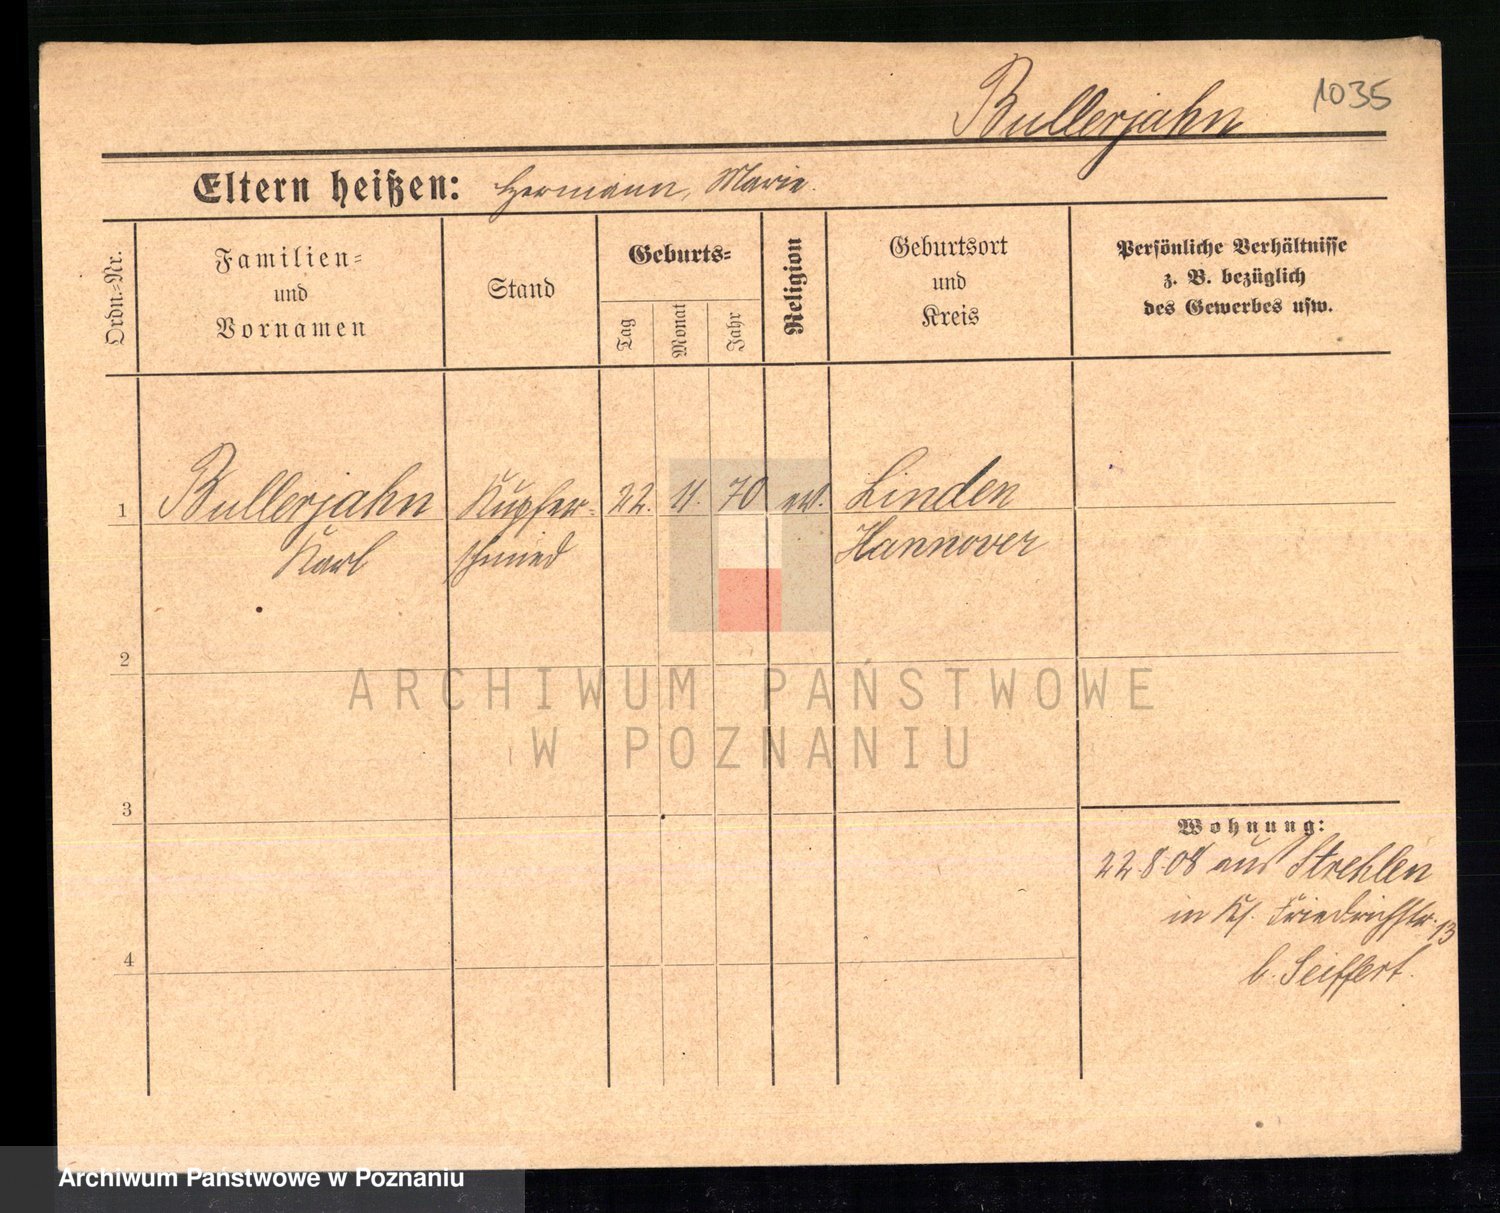 Bullerjahn 1035
Eltern heißen: Hermann, Marie.
Ordn.-Nr.
Familien-
und
Vornamen
Stand
Geburts-
Tag
Monat
Jahr
Religion
Geburtsort
und
Kreis
Persönliche Verhältnisse
z. B. bezüglich
des Gewerbes usw.
1 Bullerjahn Kupfer- 22. 11. 70 ev. Linden
Karl schmied Hannover
2
ARCHIWUM PAŃSTWOWE
W POZNANIU
3
Wohnung:
22.8.08 aus Strehlen
in Friedrichstr. 13
b. Seiffert.
4
Archiwum Państwowe w Poznaniu